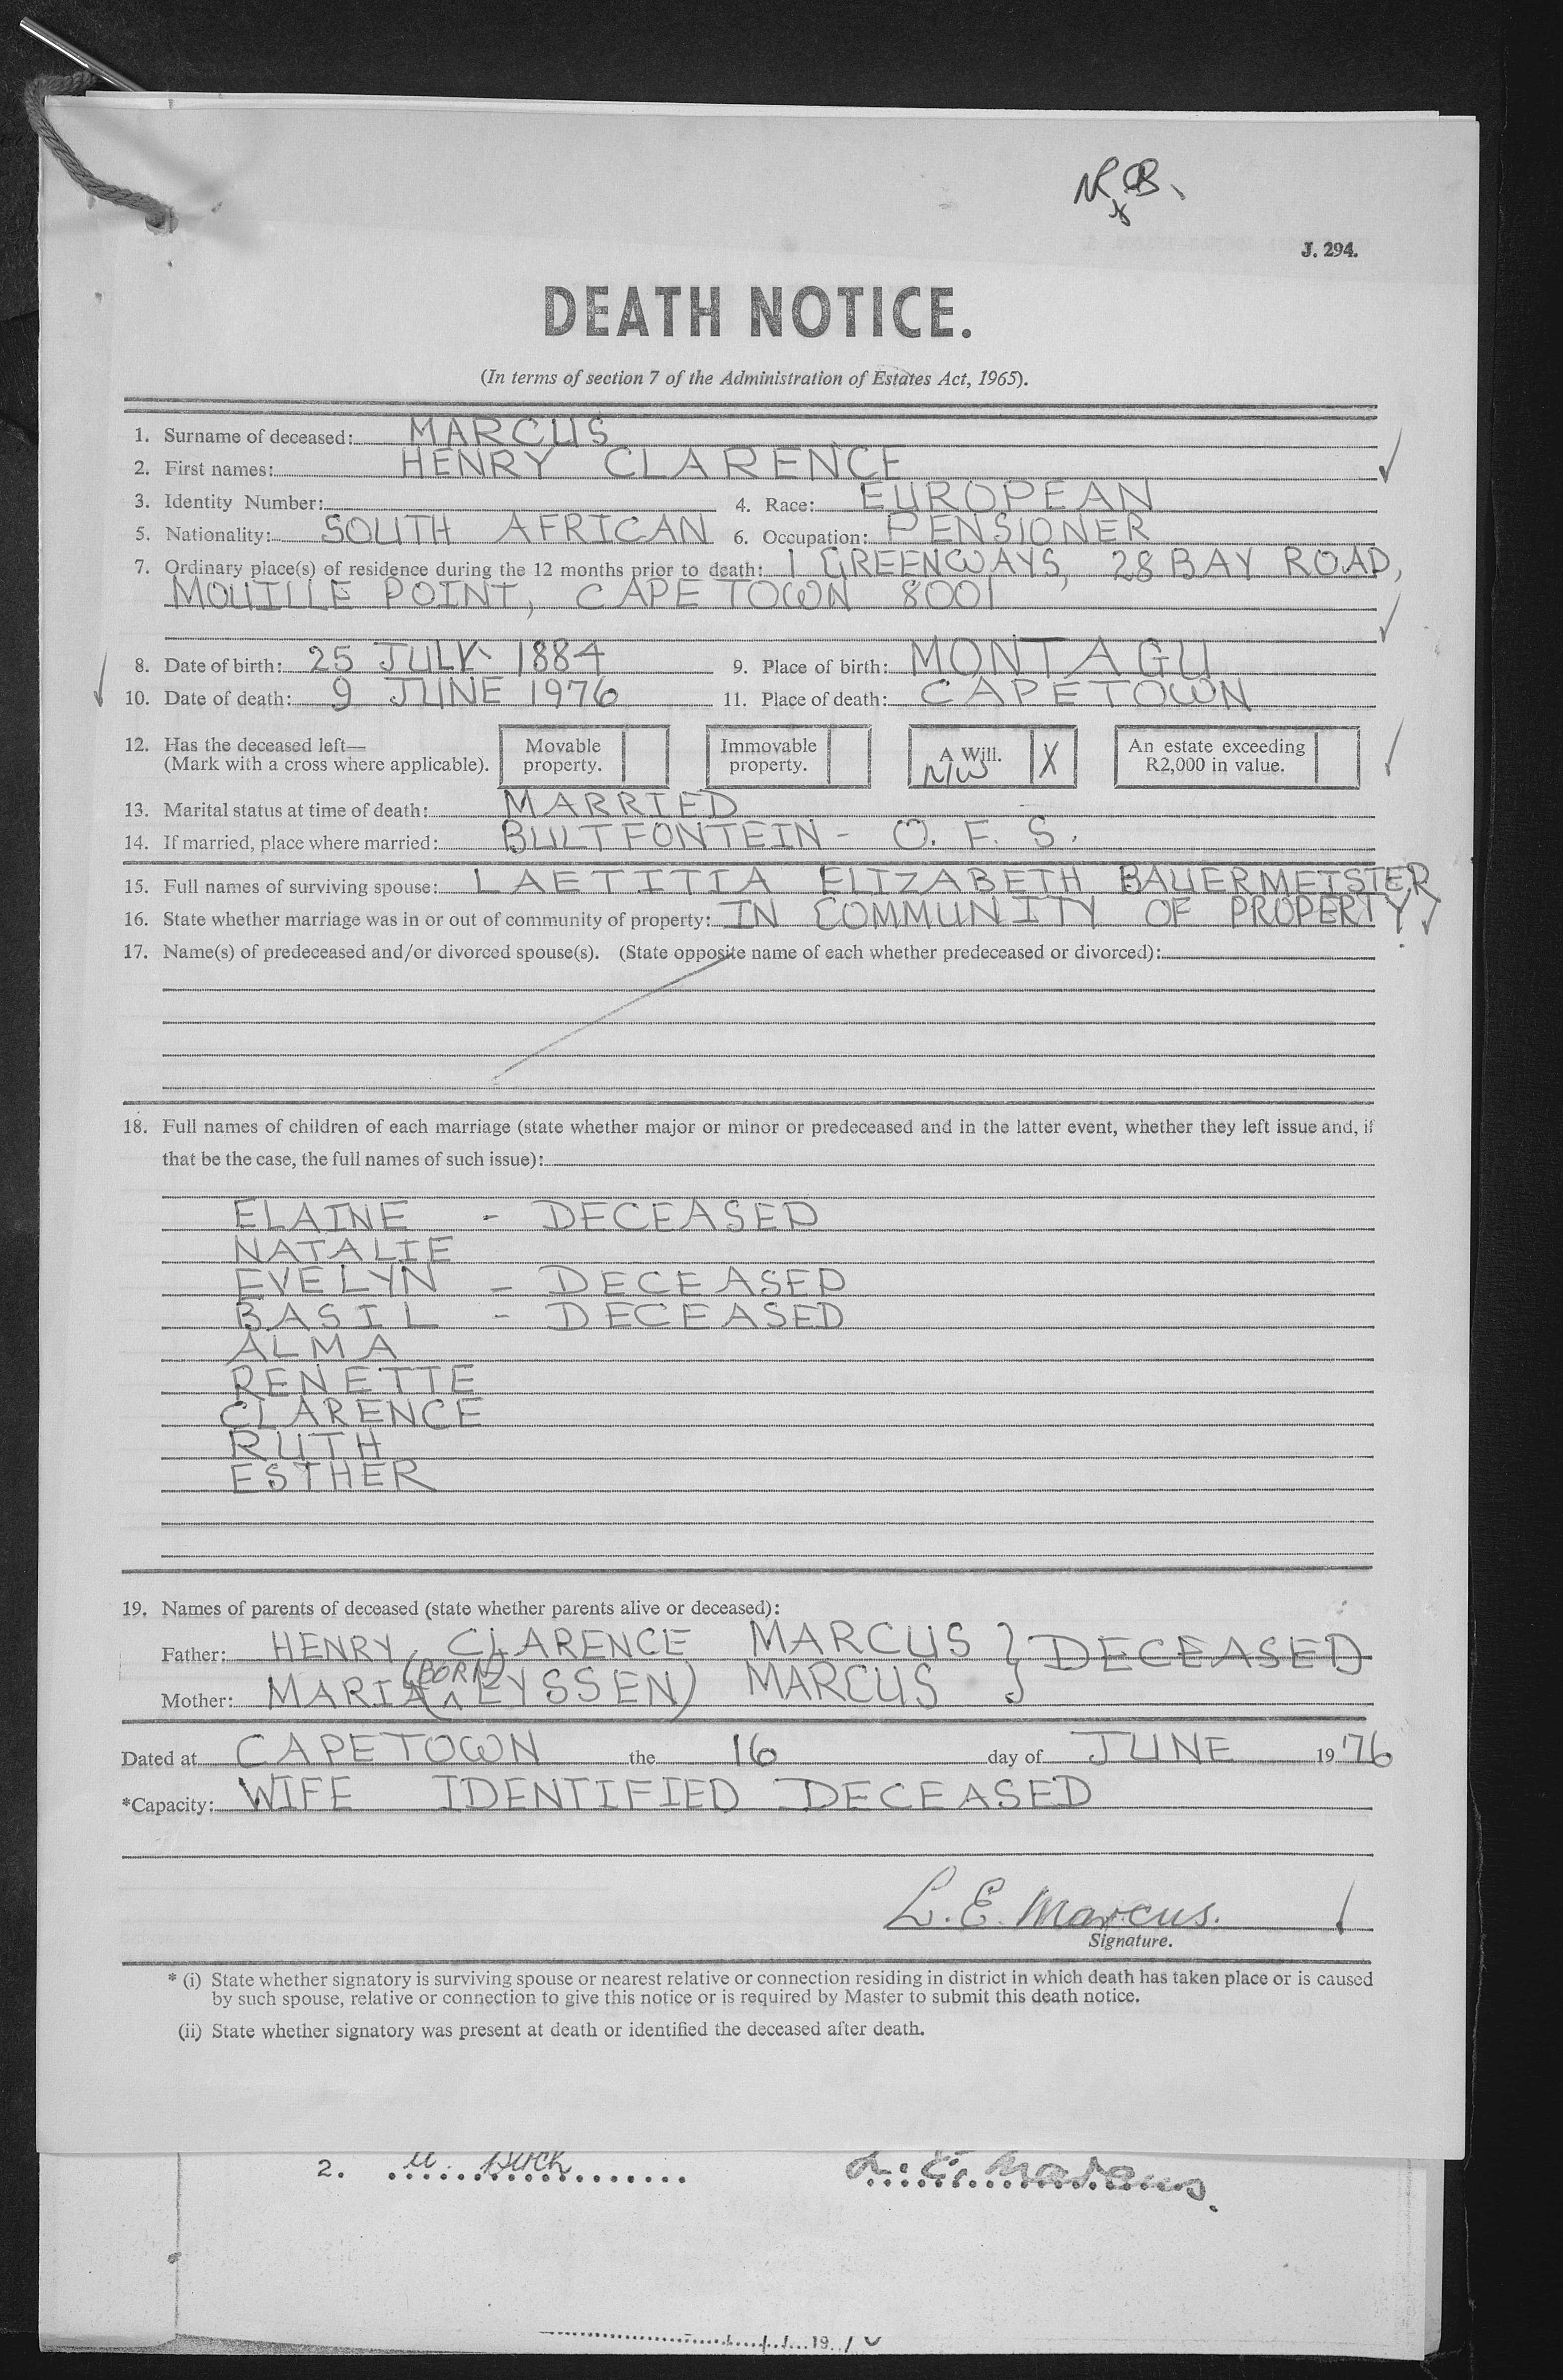 N.B.
J. 294.
DEATH NOTICE.
(In terms of section 7 of the Administration of Estates Act, 1965).
1. Surname of deceased: MARCUS
2. First names: HENRY CLARENCE
3. Identity Number: 4. Race: EUROPEAN
5. Nationality: SOUTH AFRICAN 6. Occupation: PENSIONER
7. Ordinary place(s) of residence during the 12 months prior to death: 1 GREENWAYS, 28 BAY ROAD,
MOUILLE POINT, CAPE TOWN 8001
8. Date of birth: 25 JULY 1884 9. Place of birth: MONTAGU
10. Date of death: 9 JUNE 1976 11. Place of death: CAPE TOWN
12. Has the deceased left—
(Mark with a cross where applicable).
Movable property.
Immovable property.
A Will. N/W X
An estate exceeding R2,000 in value.
13. Marital status at time of death: MARRIED
14. If married, place where married: BULTFONTEIN - O. F. S.
15. Full names of surviving spouse: LAETITIA ELIZABETH BAUERMEISTER
16. State whether marriage was in or out of community of property: IN COMMUNITY OF PROPERTY
17. Name(s) of predeceased and/or divorced spouse(s). (State opposite name of each whether predeceased or divorced):
18. Full names of children of each marriage (state whether major or minor or predeceased and in the latter event, whether they left issue and, if
that be the case, the full names of such issue):
ELAINE - DECEASED
NATALIE
EVELYN - DECEASED
BASIL - DECEASED
ALMA
RENETTE
CLARENCE
RUTH
ESTHER
19. Names of parents of deceased (state whether parents alive or deceased):
Father: HENRY CLARENCE MARCUS } DECEASED
Mother: MARIA (BORN EYSSEN) MARCUS
Dated at CAPE TOWN the 16 day of JUNE 19 '76
*Capacity: WIFE IDENTIFIED DECEASED
L. E. Marcus.
Signature.
* (i) State whether signatory is surviving spouse or nearest relative or connection residing in district in which death has taken place or is caused
by such spouse, relative or connection to give this notice or is required by Master to submit this death notice.
(ii) State whether signatory was present at death or identified the deceased after death.
2. L. E. Marcus.
19